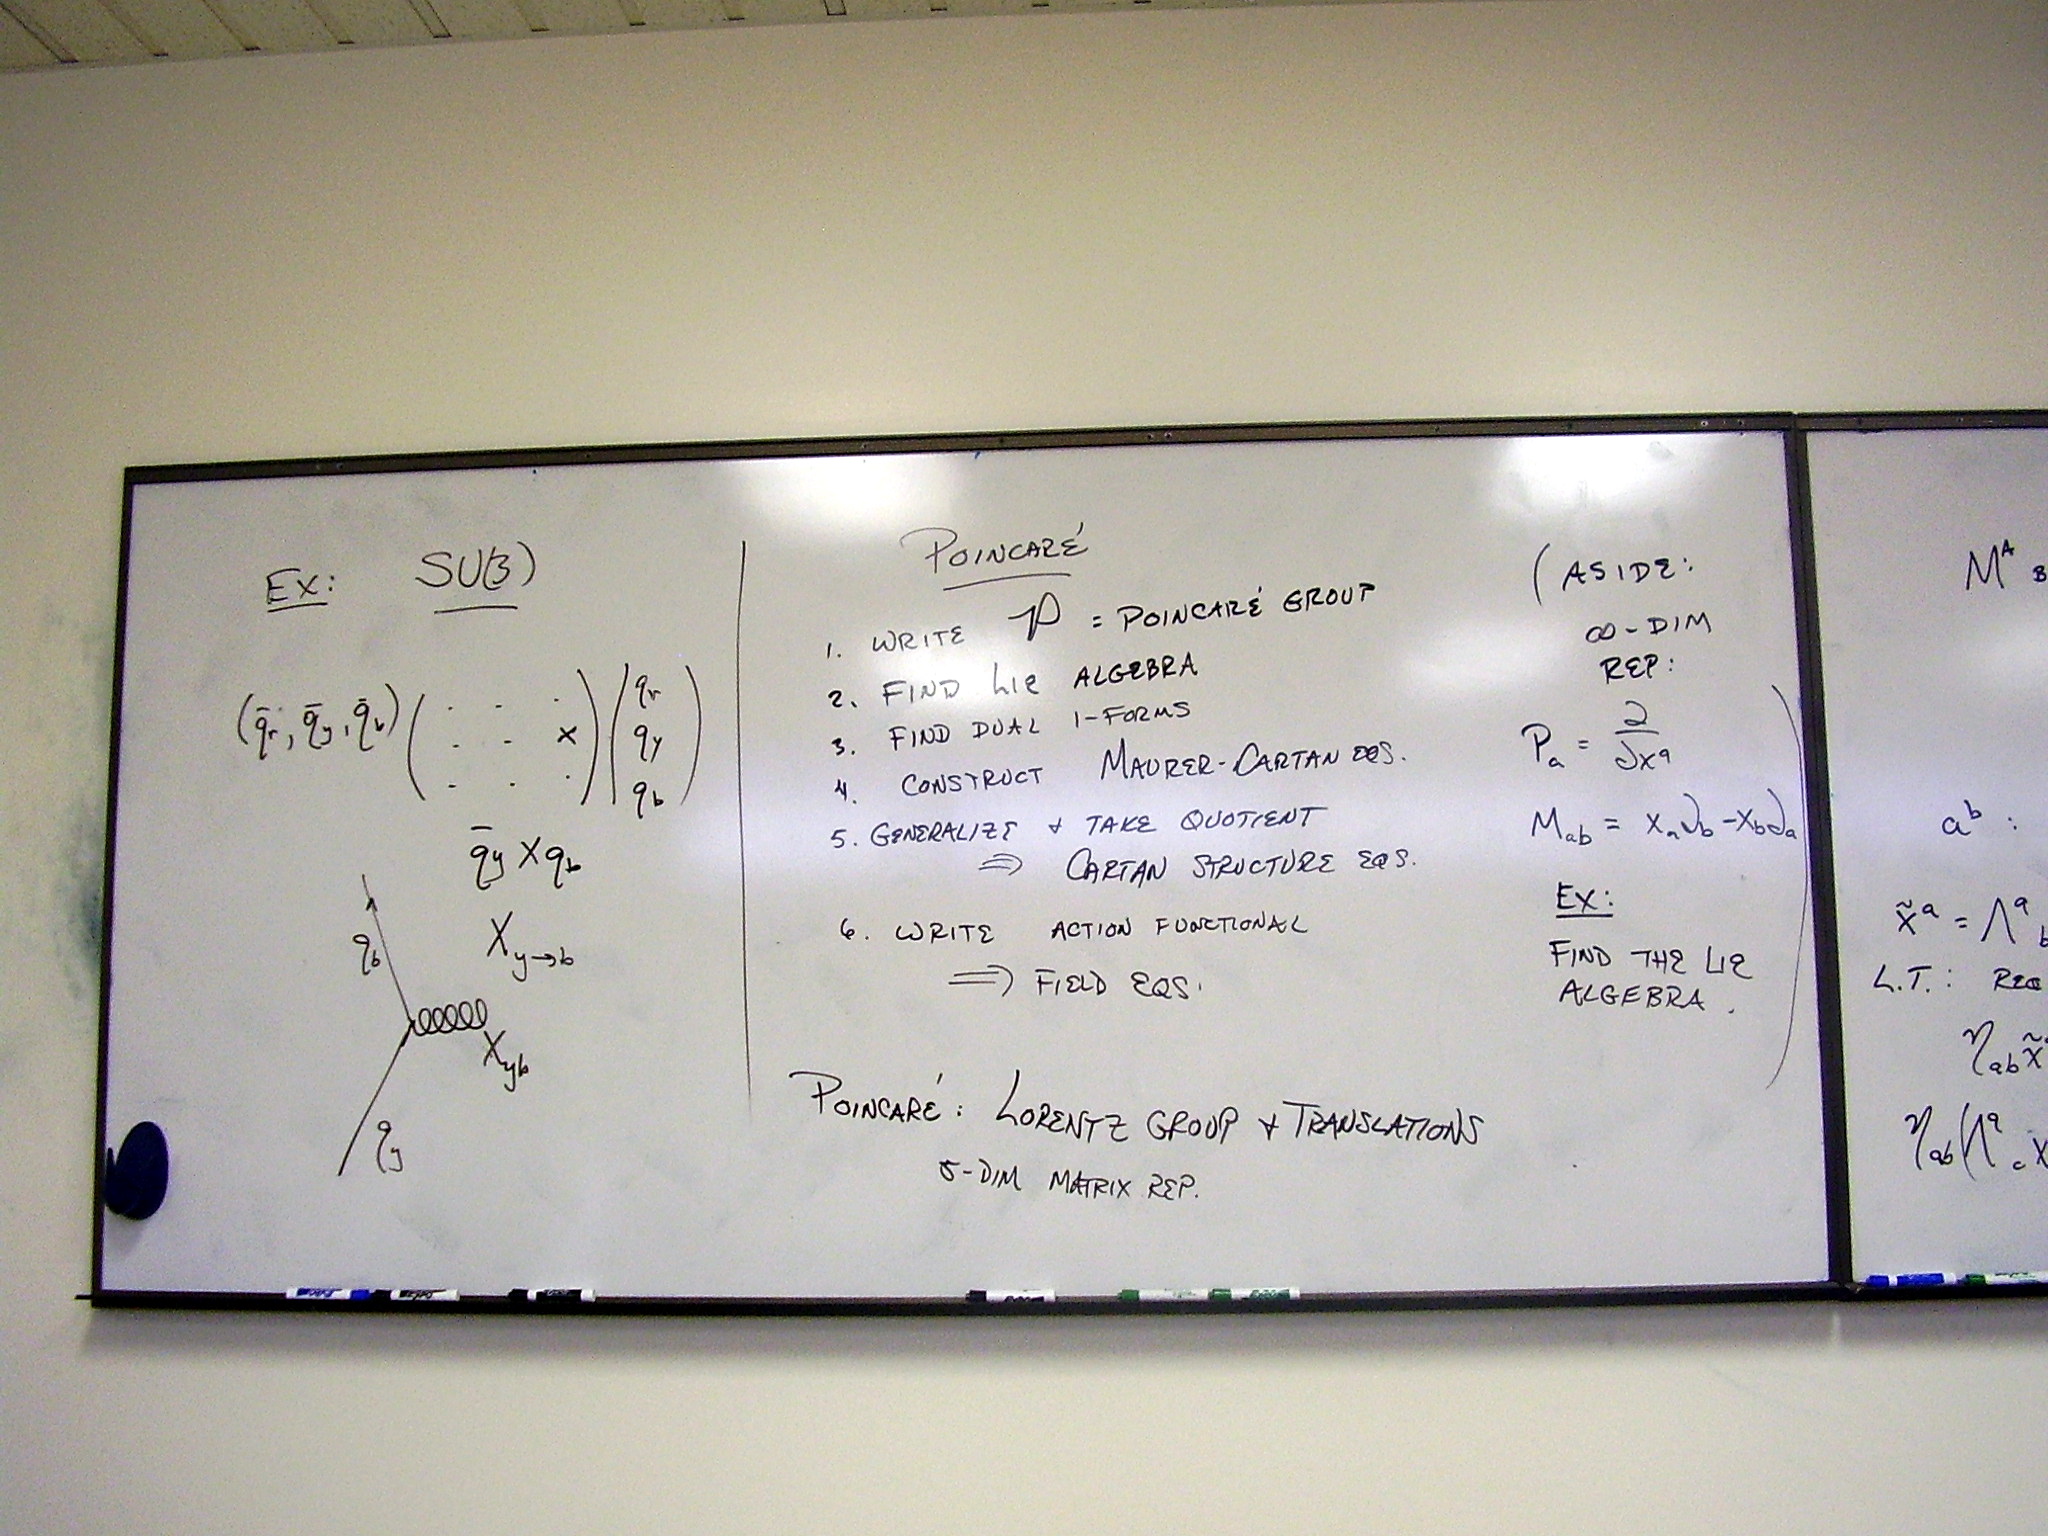 Ex: SU(3)
(q̄r, q̄y, q̄b) ( . . . . . x . . . ) ( qr qy qb )
q̄y X qb
X y→b
qb
X yb
qy
POINCARÉ
1. WRITE P = POINCARÉ GROUP
2. FIND LIE ALGEBRA
3. FIND DUAL 1-FORMS
4. CONSTRUCT MAURER-CARTAN EQS.
5. GENERALIZE & TAKE QUOTIENT
⇒ CARTAN STRUCTURE EQS.
6. WRITE ACTION FUNCTIONAL
⇒ FIELD EQS.
POINCARÉ: LORENTZ GROUP & TRANSLATIONS
5-DIM MATRIX REP.
(ASIDE:
∞-DIM
REP:
Pa = ∂/∂xᵃ
Mab = xa∂b - xb∂a
EX:
FIND THE LIE
ALGEBRA. )
Mᴬ B
aᵇ :
x̃ᵃ = Λᵃ b
L.T. :
ηab x̃
ηab(Λᵃ c x